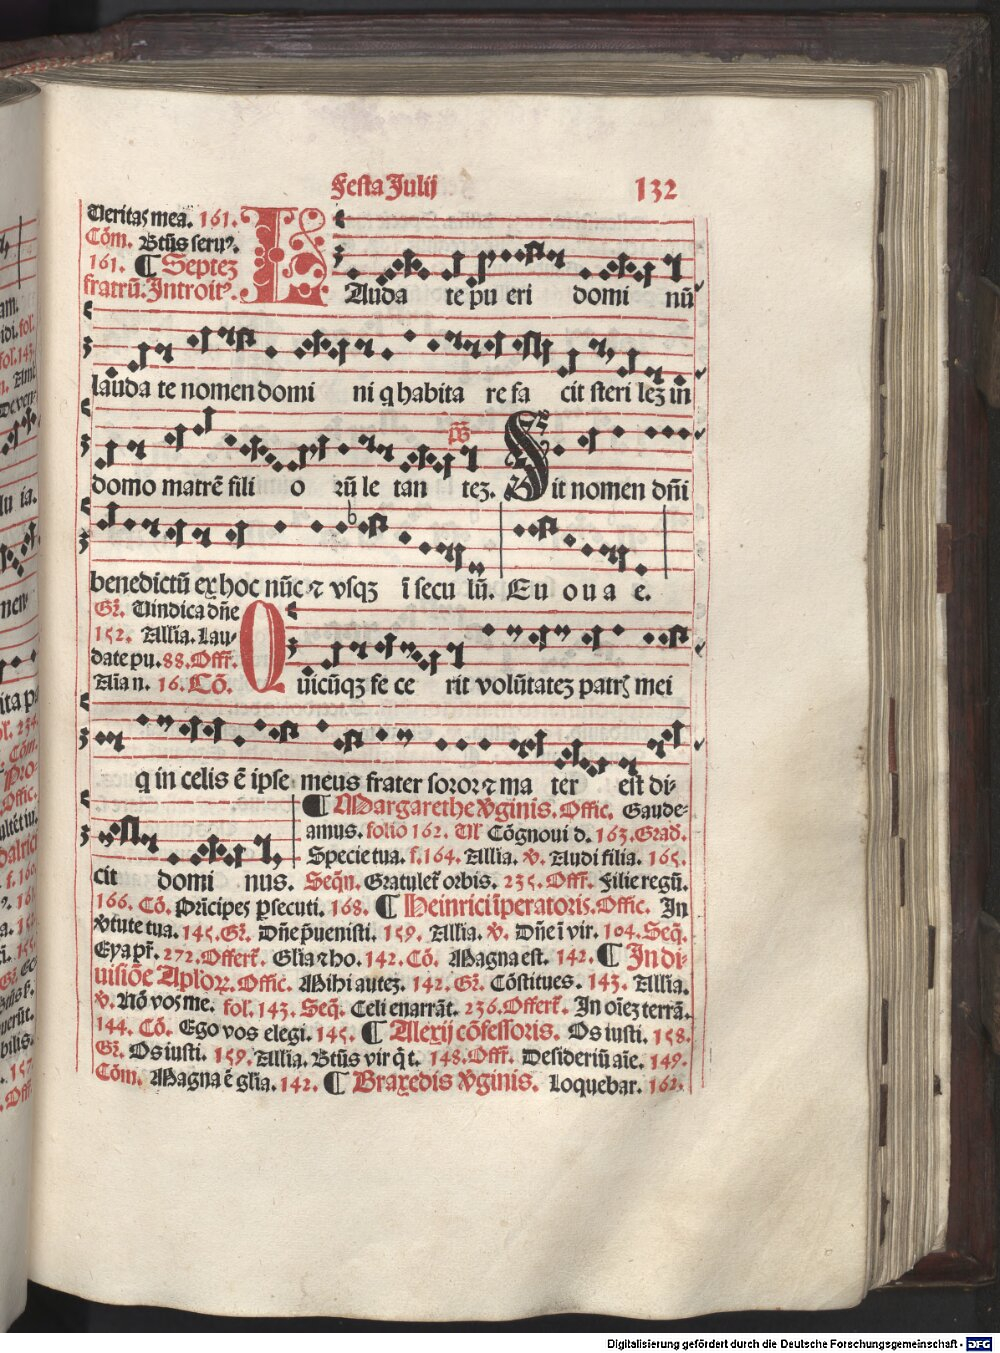 Festa Julij 132
Veritas mea. 161.
Cōm. Btūs seruꝰ.
161. ¶ Septeʒ
fratrū. Introitꝰ.
LAuda te pu eri domi nū
lauda te nomen domi ni q habita re fa cit steri leʒ in
domo matrē fili o rū le tan teʒ. p̄s Sit nomen dn̄i
benedictū ex hoc nūc ⁊ vsqʒ ī secu lū. Eu o u a e.
Gr̄. Vindica dn̄e
152. Allīa. Lau-
date pu. 88. Off̄r.
Aīa n. 16. Cō.
Quicūqʒ fe ce rit volūtateʒ patrꝭ mei
q in celis ē ipse meus frater soror ⁊ ma ter est di-
cit domi nus.
¶ Margarethe v̄ginis. Offic. Gaude-
amus. folio 162. Vł Cōgnoui d. 163. Grad.
Specie tua. f. 164. Allīa. v. Audi filia. 165.
Seq̄n. Gratuleꝉ orbis. 235. Off̄r. Filie regū.
166. Cō. Prīcipes ꝑsecuti. 168. ¶ Heinrici īperatoris. Offic. In
v̄tute tua. 145. Gr̄. Dn̄e p̄uenisti. 159. Allīa. v. Dn̄e ī vir. 104. Seq̄.
Eya pr̄. 272. Offerꝉ. Glīa ⁊ ho. 142. Cō. Magna est. 142. ¶ In di-
uisiōe Aplōꝝ. Offic. Mihi auteʒ. 142. Gr̄. Cōstitues. 143. Allīa.
v. Nō vos me. fol. 143. Seq̄. Celi enarrāt. 236. Offerꝉ. In oīeʒ terrā.
144. Cō. Ego vos elegi. 145. ¶ Alexij cōfessoris. Os iusti. 158.
Gr̄. Os iusti. 159. Allīa. Btūs vir q̄ t. 148. Off̄r. Desideriū aīe. 149.
Cōm. Magna ē glīa. 142. ¶ Braxedis v̄ginis. Loquebar. 162.
Digitalisierung gefördert durch die Deutsche Forschungsgemeinschaft - DFG